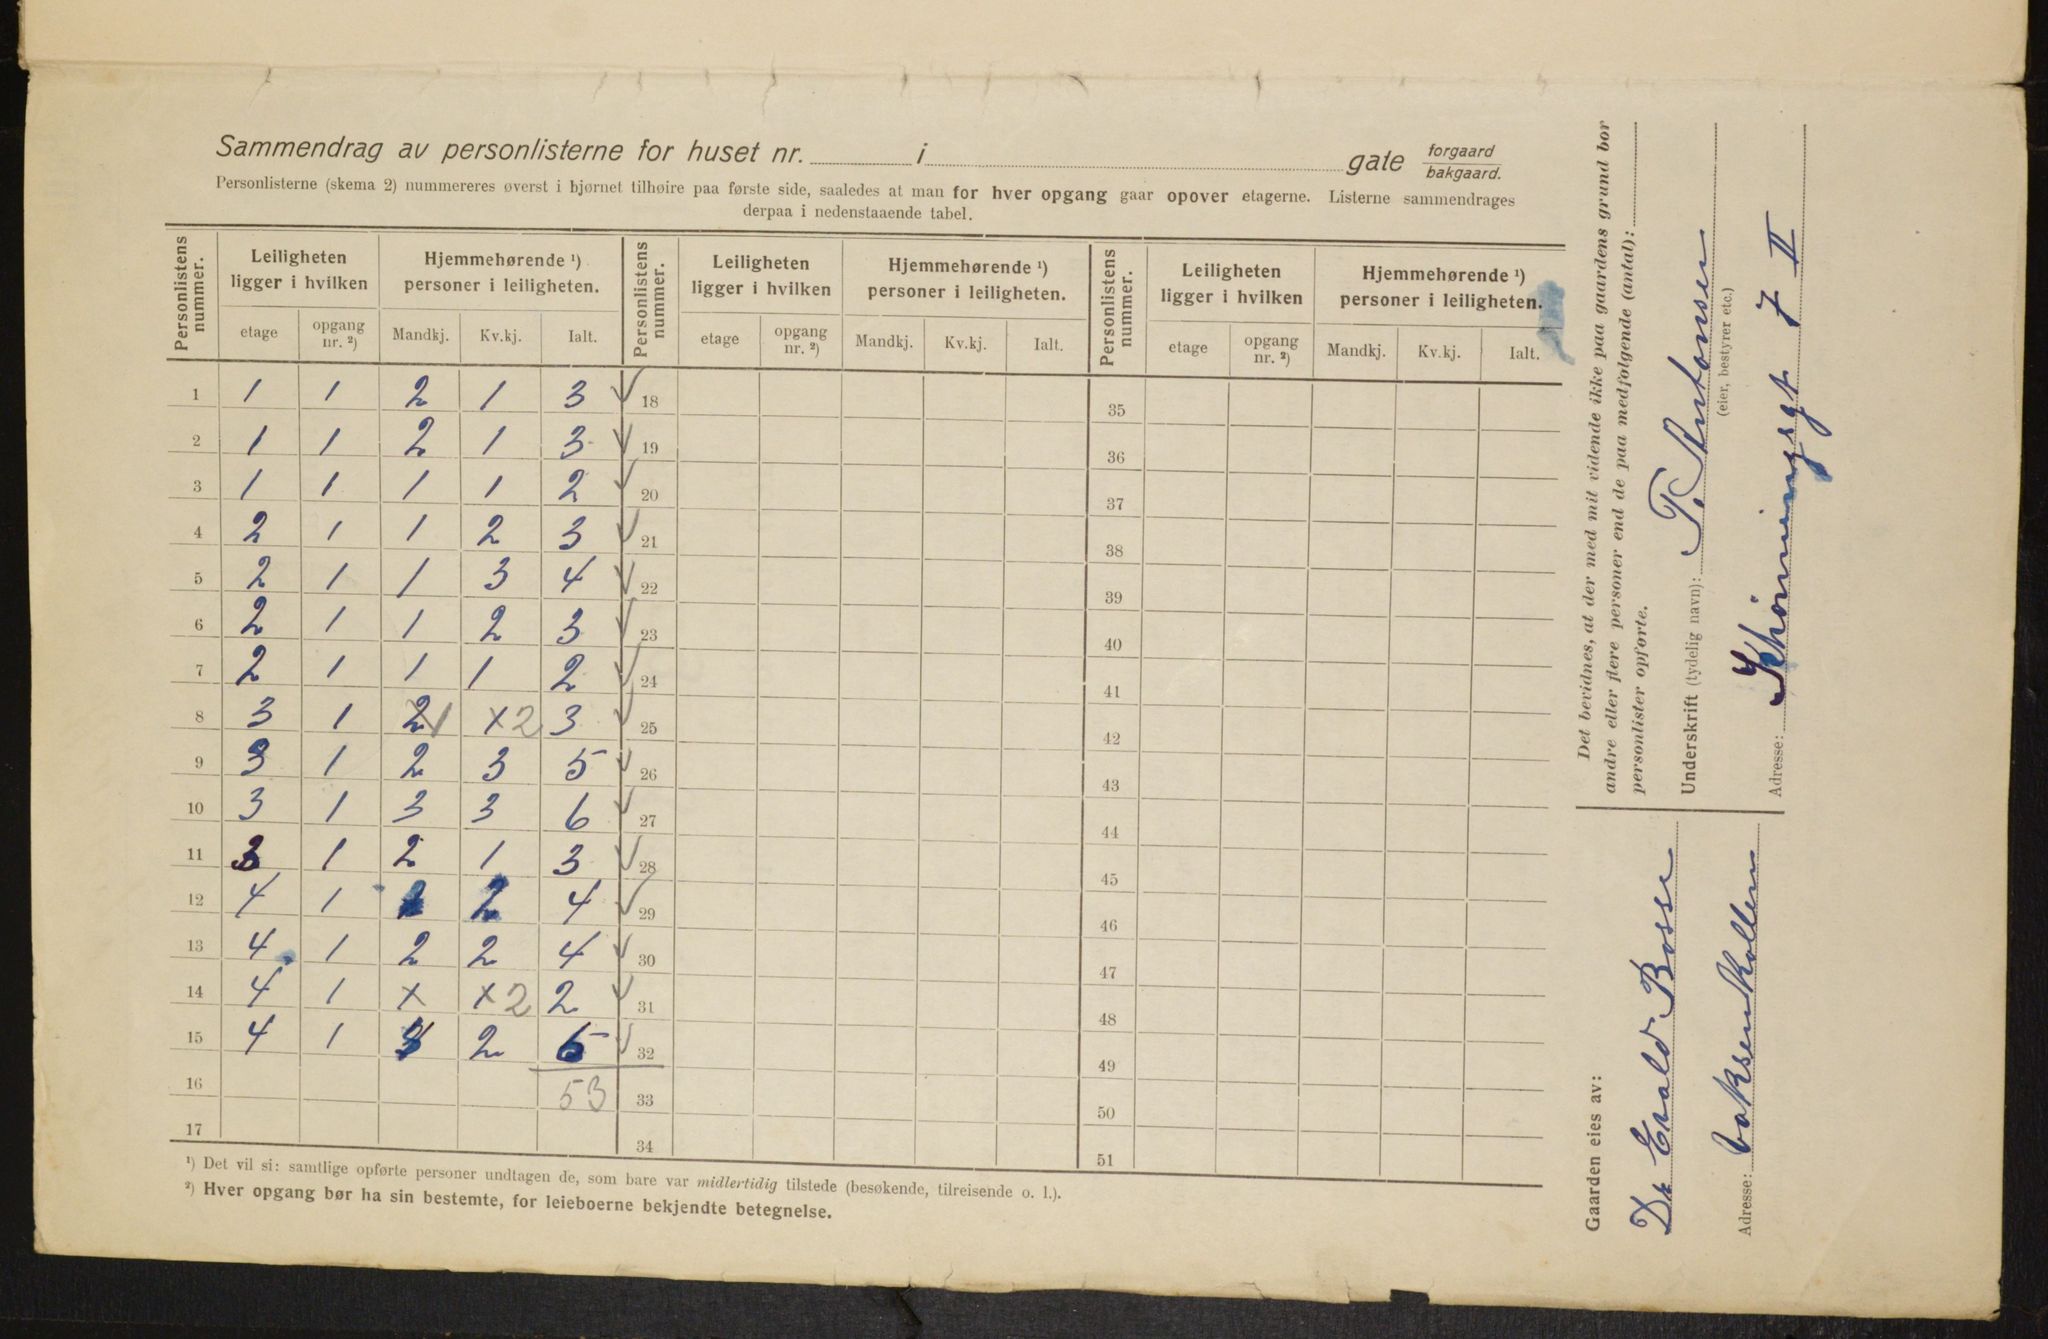 Sammendrag av personlisterne for huset nr. i gate forgaard bakgaard.
Personlisterne (skema 2) nummereres øverst i hjørnet tilhøire paa første side, saaledes at man for hver opgang gaar opover etagerne. Listerne sammendrages
derpaa i nedenstaaende tabel.
Personlistens nummer. Leiligheten ligger i hvilken Hjemmehørende ¹) personer i leiligheten. Personlistens nummer. Leiligheten ligger i hvilken Hjemmehørende ¹) personer i leiligheten. Personlistens nummer. Leiligheten ligger i hvilken Hjemmehørende ¹) personer i leiligheten.
etage opgang nr. ²) Mandkj. Kv.kj. Ialt. etage opgang nr. ²) Mandkj. Kv.kj. Ialt. etage opgang nr. ²) Mandkj. Kv.kj. Ialt.
1 1 1 2 1 3 ✓ 18 35
2 1 1 2 1 3 ✓ 19 36
3 1 1 1 1 2 ✓ 20 37
4 2 1 1 2 3 ✓ 21 38
5 2 1 1 3 4 ✓ 22 39
6 2 1 1 2 3 ✓ 23 40
7 2 1 1 1 2 ✓ 24 41
8 3 1 2 1 x 2 3 ✓ 25 42
9 3 1 2 3 5 ✓ 26 43
10 3 1 3 3 6 ✓ 27 44
11 3 1 2 1 3 ✓ 28 45
12 4 1 2 2 4 ✓ 29 46
13 4 1 2 2 4 ✓ 30 47
14 4 1 x x 2 2 ✓ 31 48
15 4 1 2 ✓ 32 49
16 53 33 50
17 34 51
¹) Det vil si: samtlige opførte personer undtagen de, som bare var midlertidig tilstede (besøkende, tilreisende o. l.).
²) Hver opgang bør ha sin bestemte, for leieboerne bekjendte betegnelse.
Det bevidnes, at der med mit vidende ikke paa gaardens grund bor
andre eller flere personer end de paa medfølgende (antal):
personlister opførte.
Underskrift (tydelig navn): T. Antonsen
(eier, bestyrer etc.)
Adresse: Schøningsgt 7 II
Gaarden eies av:
Dr Evald Bosse
Adresse: Voksenkollen